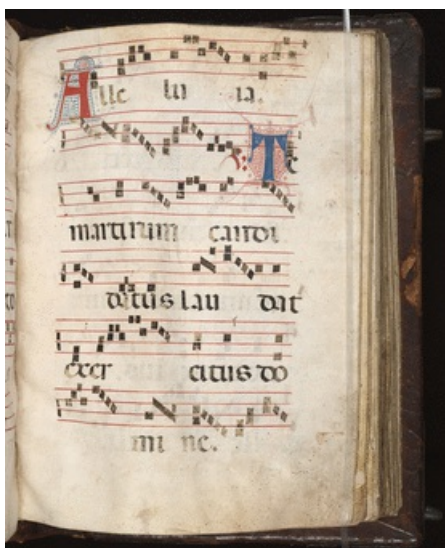 Alle lu ia.
℣. Te
martirum candi
datus lau dat
exer citus do
mi ne.